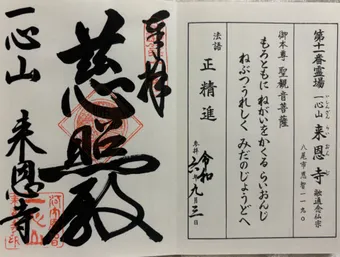 第十一番霊場
一心山 来恩寺 融通念仏宗
いっしんざん らいおんじ
八尾市恩智一一九〇
御本尊 聖観音菩薩
もろともに ねがいをかくる らいおんじ
ねぶつうれしく みだのじょうどへ
法語
正精進
奉拝 令和六年九月三日
奉拝
慈照殿
一心山 来恩寺